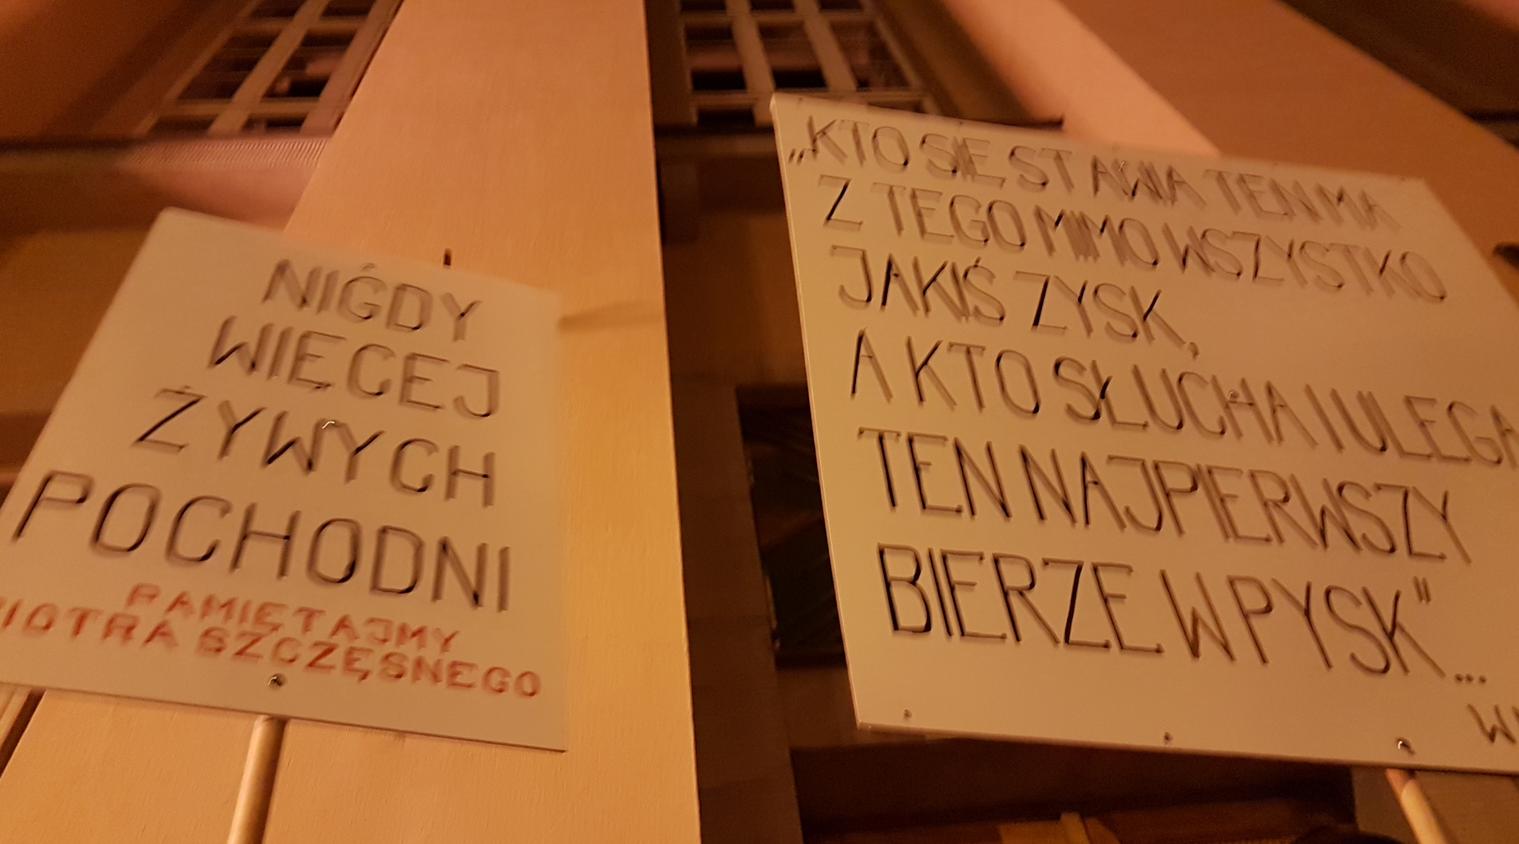 NIGDY
WIĘCEJ
ŻYWYCH
POCHODNI
PAMIĘTAJMY
PIOTRA SZCZĘSNEGO
„KTO SIĘ STAWIA TEN MA
Z TEGO MIMO WSZYSTKO
JAKIŚ ZYSK,
A KTO SŁUCHA I ULEGA
TEN NAJPIERWSZY
BIERZE W PYSK"...